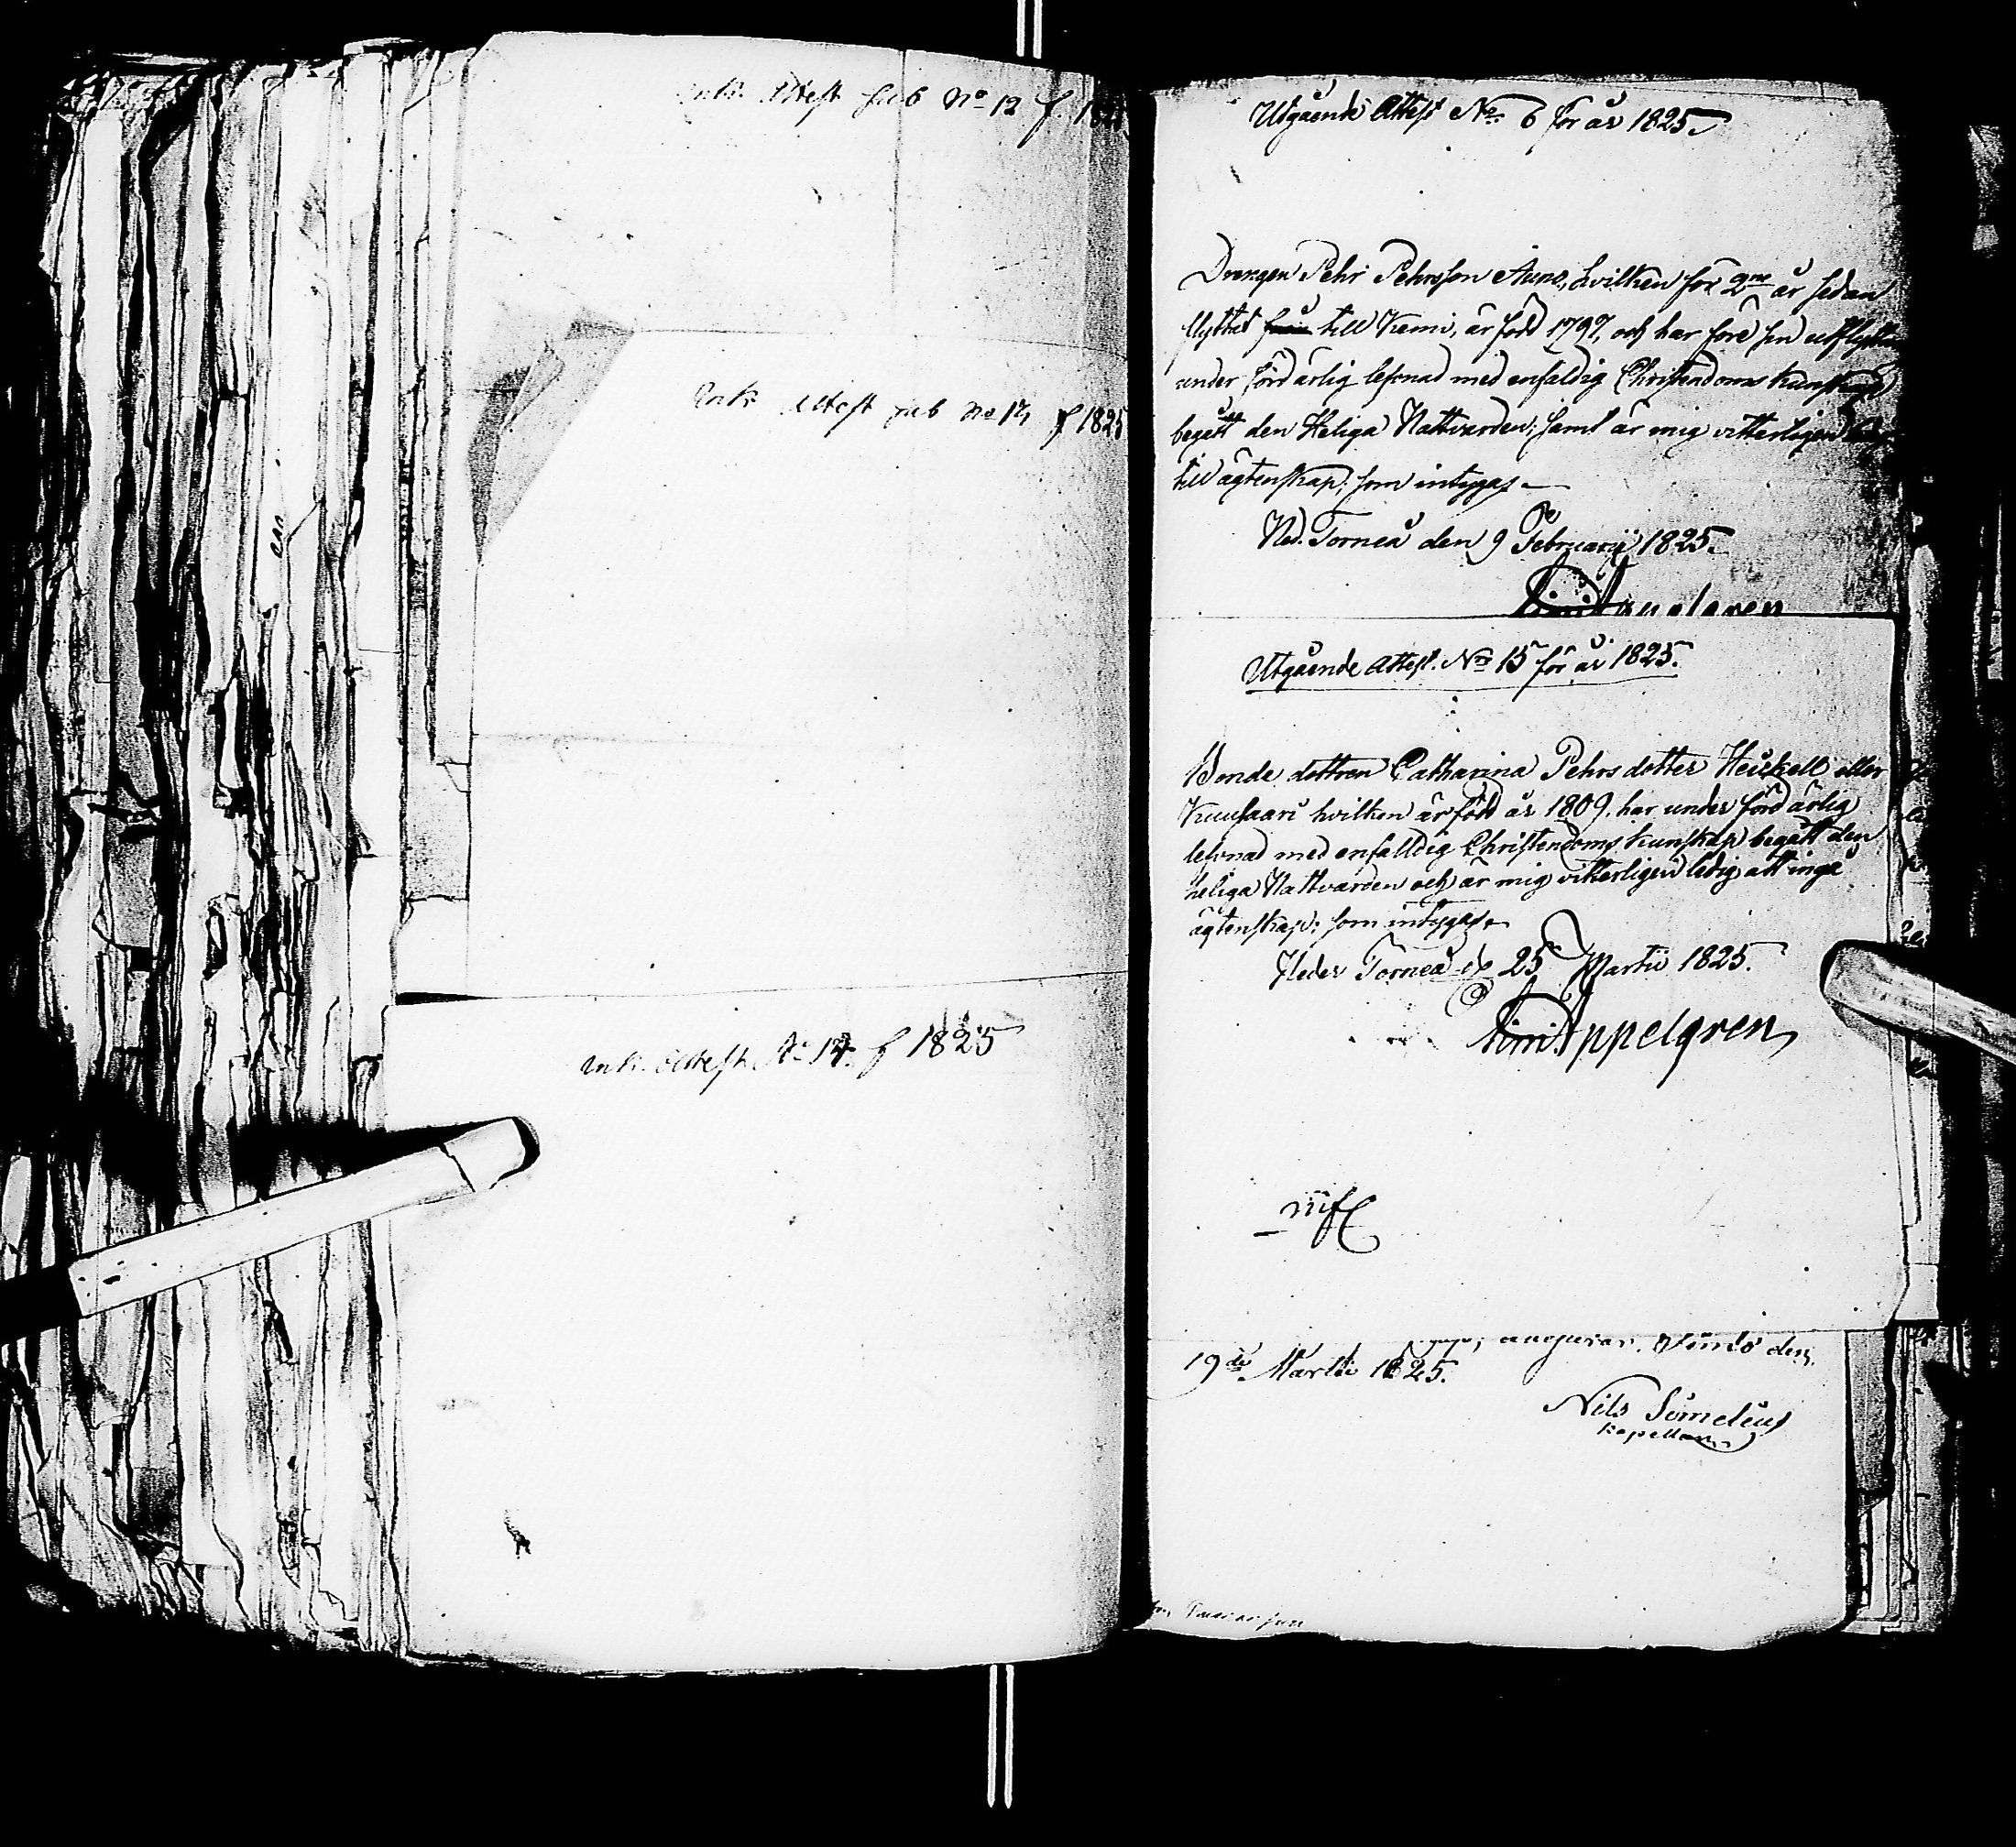 Ink. Attest sub No 12 f. 1825
Ink Attest sub No 14 f 1825
Ink. Attest. No 14. f 1825
Utgående Attest No 6 för år 1825.
Drengen Pehr Pehrsson Auno, hvilken för 2ne år sedan
flyttat till Kemi, är född 1797, och har före sin utflyttn
under förd ärlig lefnad med enfaldig Christendoms kunskap
begått den Heliga Nattvarden; samt är mig vitterligen
till ägtenskap; som intygas
Ned. Torneå den 9 Februarii 1825.
Utgående Attest. No 15 för år 1825.
Bonde dottren Catharina Pehrs dotter Heickell eller
Kuusaari hvilken är född år 1809. har under förd ärlig
lefnad med enfalldig Christendoms kunskap begått den
heliga Nattvarden och är mig vitterligen ledig att ingå
ägtenskap; som intygas
Neder Torneå d 25 Martii 1825.
Appelgren
19de Martii 1825.
Nils Simelius
Kapellan